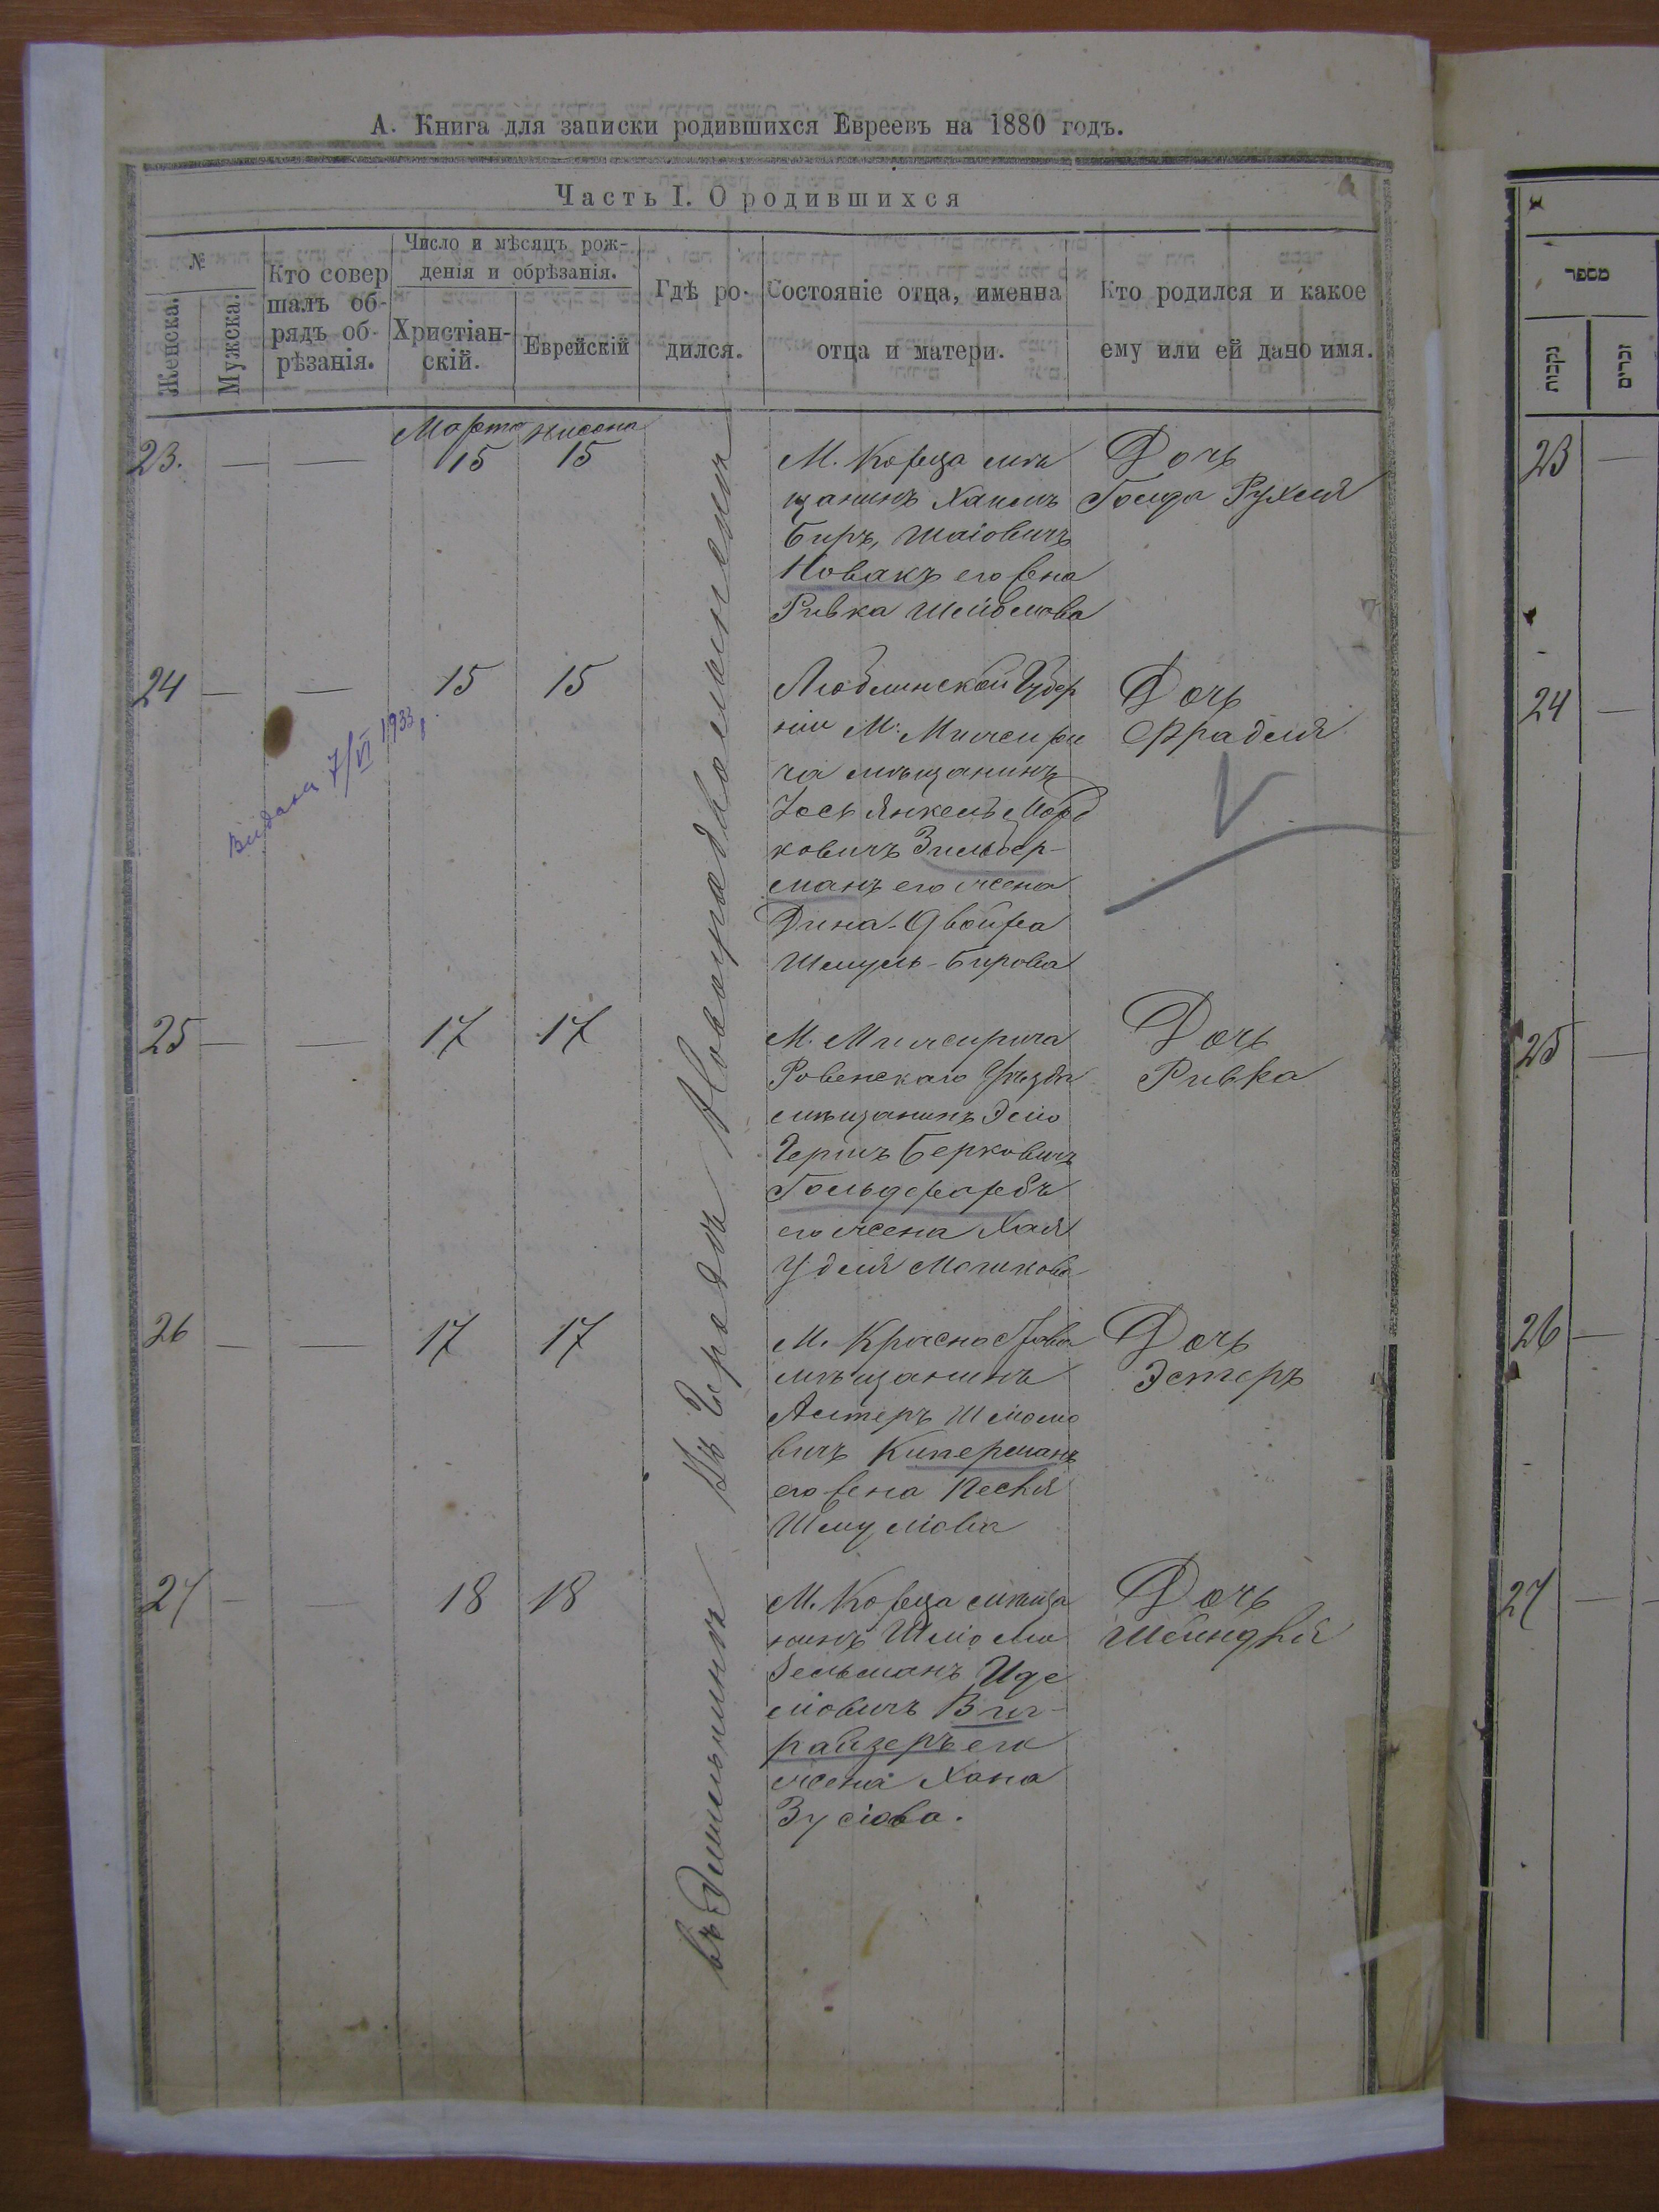 А. Книга для записки родившихся Евреевъ на 1880 годъ.
Часть I. О родившихся
№
Женска.
Мужска.
Кто совер
шалъ об-
рядъ об-
рѣзанія.
Число и мѣсяцъ рож-
денія и обрѣзанія.
Христіан-
скій.
Еврейскій
Гдѣ ро-
дился.
Состояніе отца, именна
отца и матери.
Кто родился и какое
ему или ей дано имя.
Въ Городѣ Новоградволынскѣ
въ
23. — —
Марта 15
Нисона 15
М. Корца мѣ
щанинъ Хаимъ
Беръ, Шаіовичъ
Новакъ его жена
Ривка Шлиомова
Дочь
Голда Рухля
24 — —
15 15
Видана 7/VI 1933
Люблинской Губер
ніи М. Межири
ча мѣщанинъ
Іось Янкель Морд
ковичъ Зильбер-
манъ его жена
Дина-Двойра
Шмуль-Бирова
Дочь
Фрадля
25 — —
17 17
М. Межирича
Ровенскаго Уѣзда
мѣщанинъ Элио
Гершъ Берковичъ
Гольдфарбъ
его жена Хая
Удля Мошкова
Дочь
Ривка
26 — —
17 17
М. Красностава
мѣщанинъ
Алтеръ Шліомо
вичъ Киперманъ
его жена Песя
Шмуліова
Дочь
Эстеръ
27 — —
18 18
М. Корца мѣща
нинъ Шліома
Зельманъ Иде
ліовичъ Виг-
райзеръ его
жена Хана
Зусіова.
Дочь
Шейндля
מספר
נקבות
זכרים
23 —
24 —
25 —
26 —
27 — —